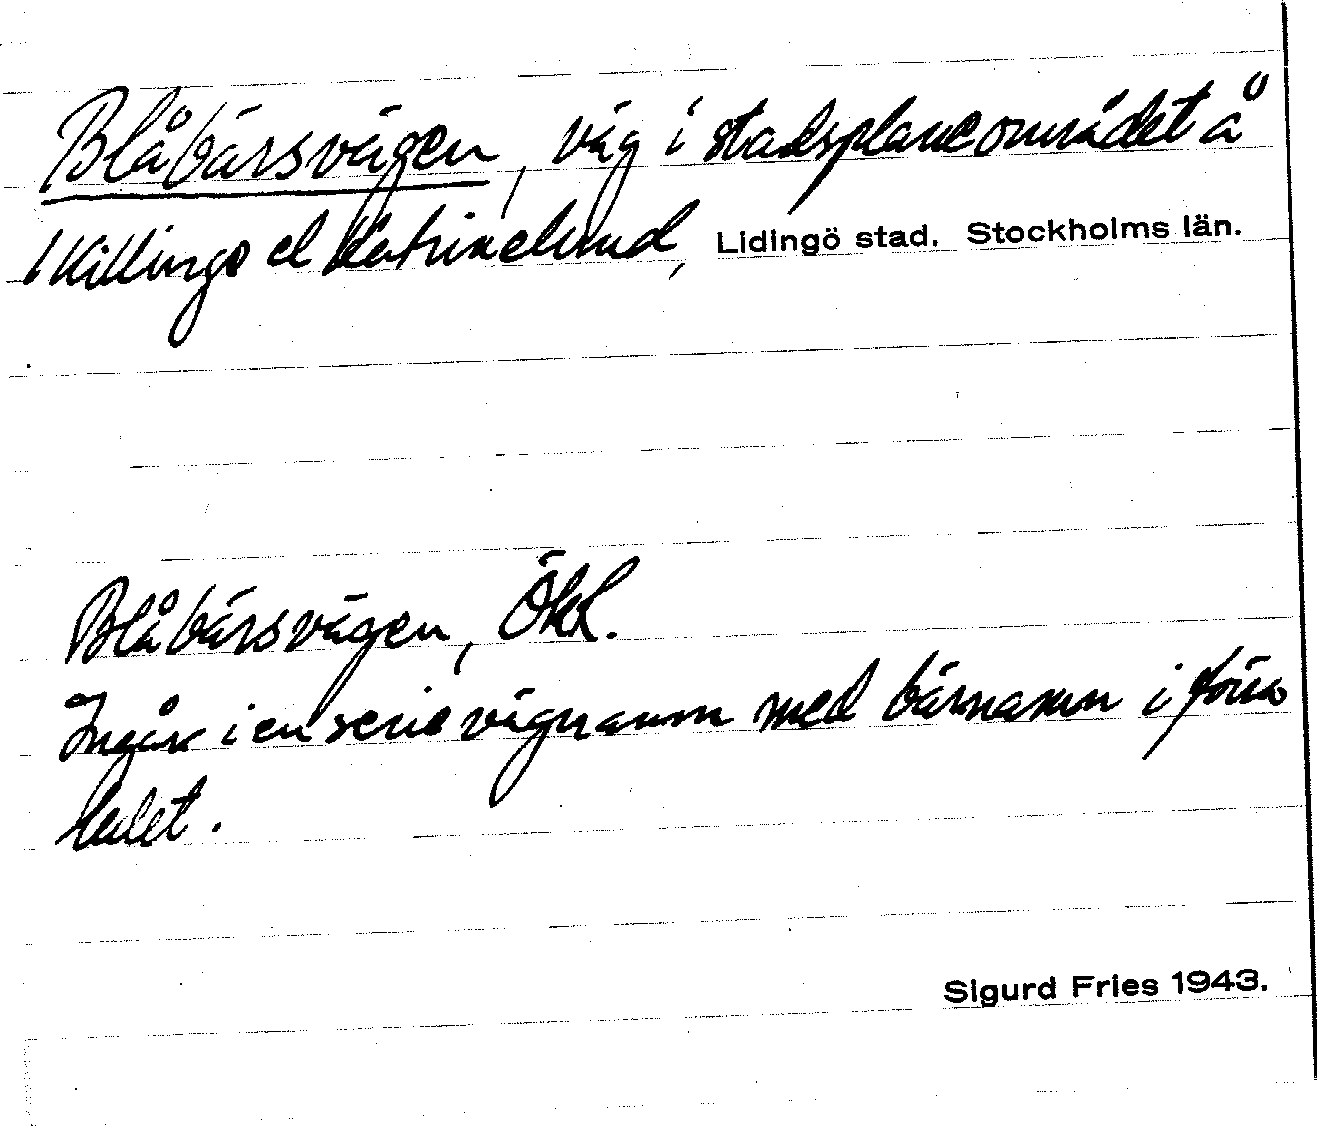 Blåbärsvägen, väg i stadsplaneområdet å
Killinge el Katrinelund, Lidingö stad. Stockholms län.
Blåbärsvägen, Ökl.
Ingår i en serie vägnamn med bärnamn i
Sigurd Fries 1943.